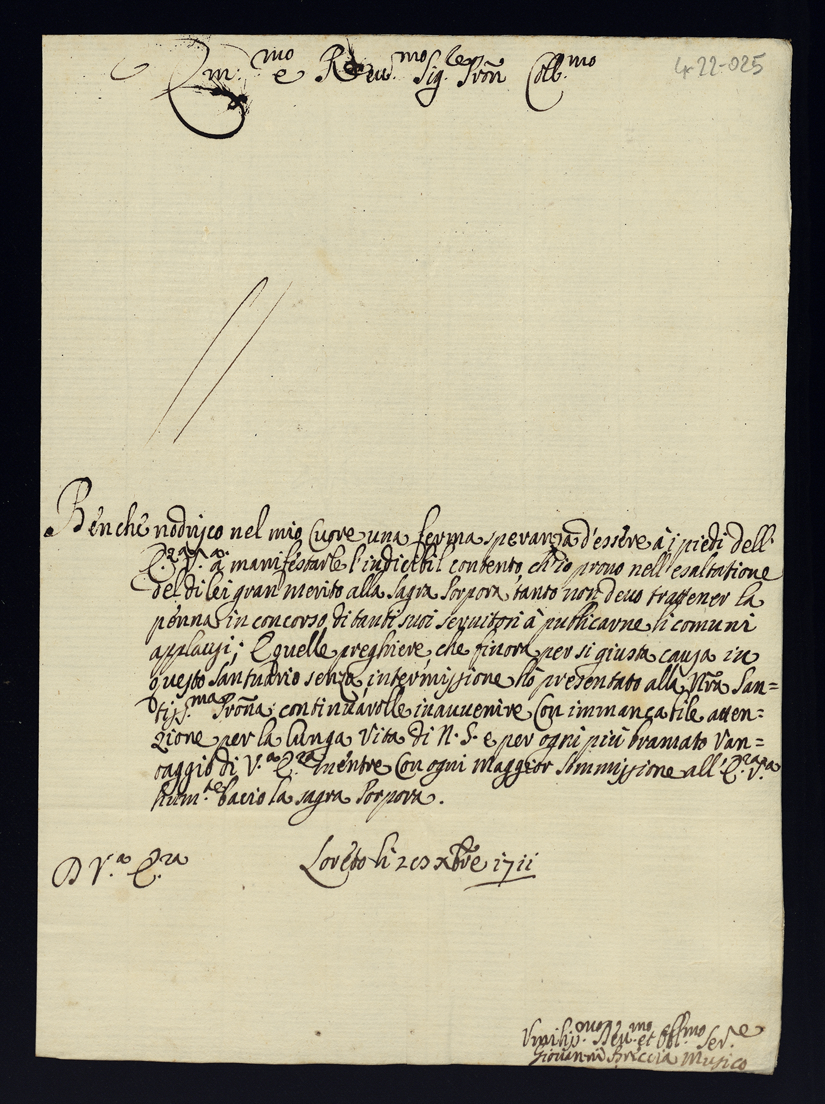 4-22-025
Em.mo e Reu.mo Sig.le Pron Coll.mo
Benche nodrisco nel mio Cuore una ferma speranza d'essere à i piedi dell'
E.za V.a à manifestarle l'indicibil contento, ch'io prouo nell'esaltatione
del di lei gran merito alla sagra Porpora, tanto non deuo trattener la
penna in concorso di tanti suoi seruitori à publicarne li comuni
applausi; E quelle preghiere che finora per si giusta causa in
questo Santuario senza intermissione hò presentato alla Nra San=
tiss.ma Prona, continuarolle inauuenire con immancabile atten=
zione per la lunga Vita di N. S. e per ogni più bramato Van=
taggio di V.a E.za mentre con ogni maggior sommissione all'E.za V.a
hum.te bacio la sagra Porpora.
D V.a E.za
Loreto li 20 Xbre 1711
Vmiliss.mo Deu.mo et Obl.mo Ser.e
Giouanni Breccia Musico